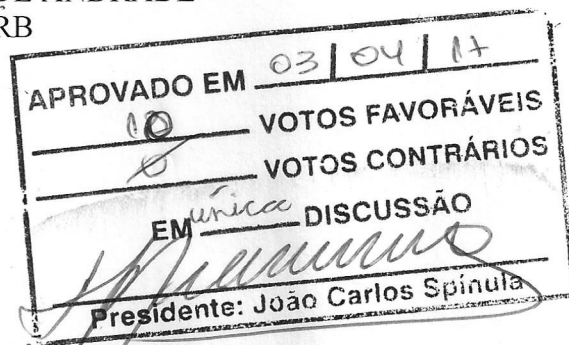 DE ANDRADE
RB
APROVADO EM 03/04/17
10 VOTOS FAVORÁVEIS
0 VOTOS CONTRÁRIOS
EM única DISCUSSÃO
Presidente: João Carlos Spínula